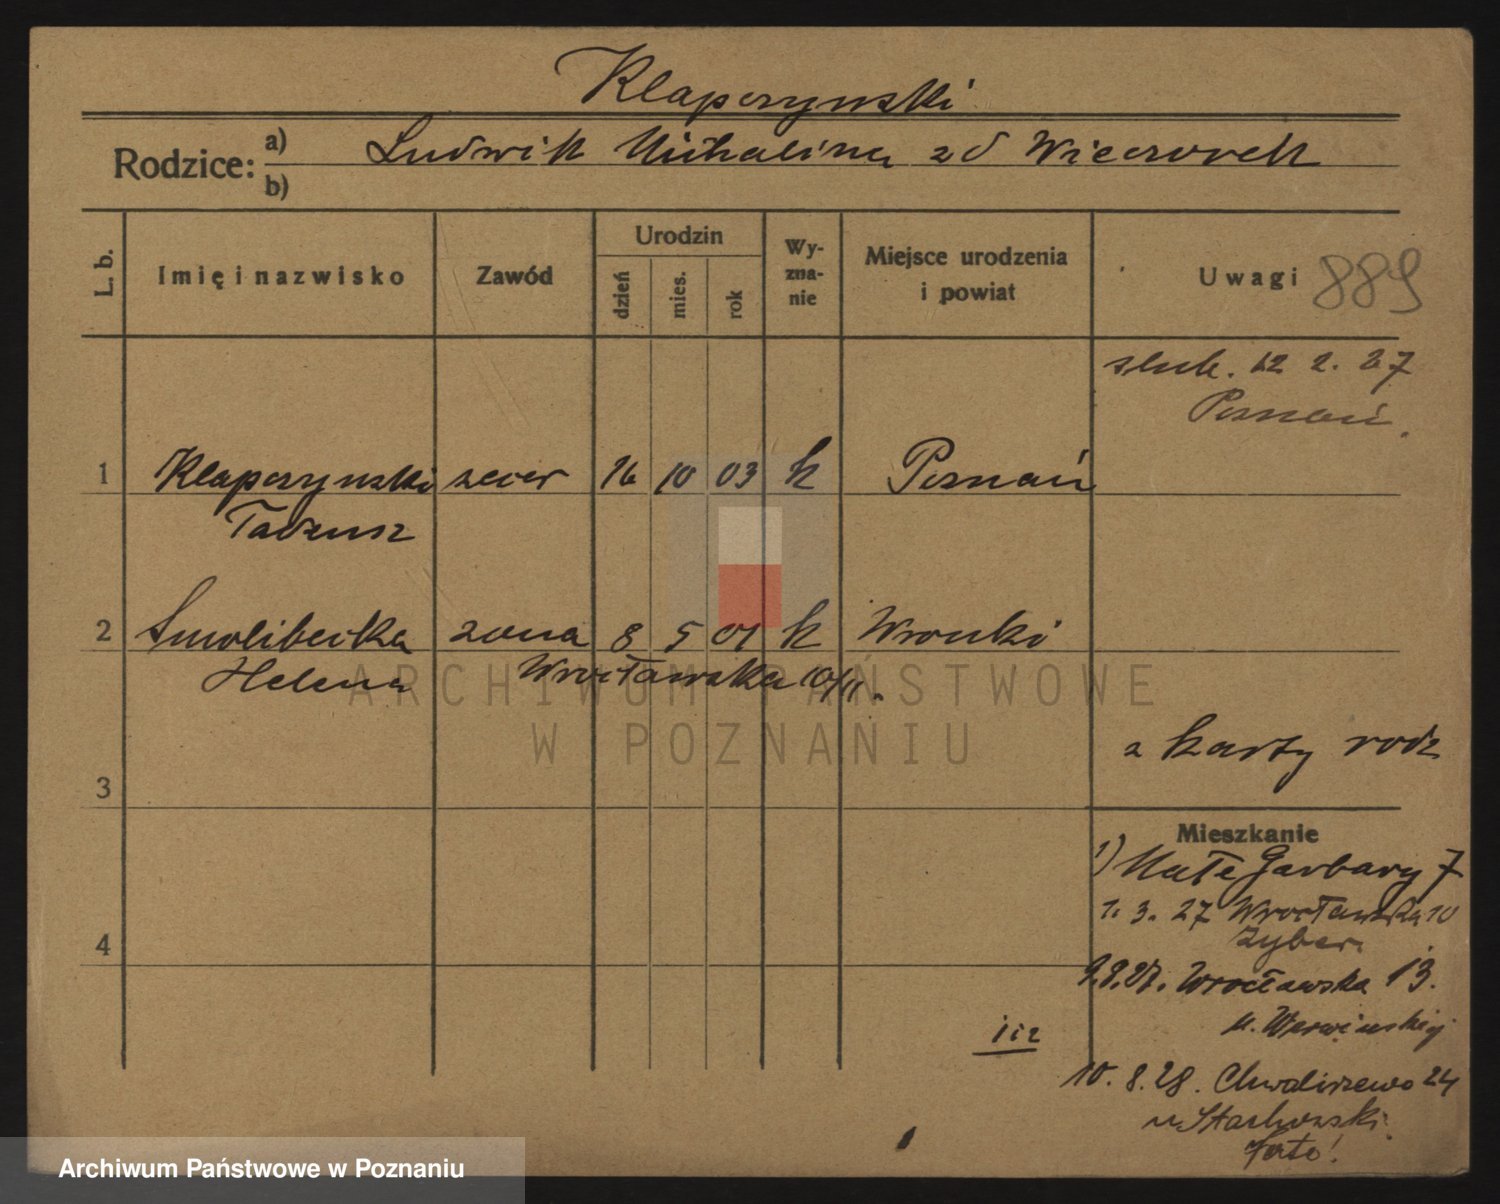 Klapczynski
Rodzice: a) Ludwik Michalina zd Wieczorek
b)
L. b.
Imię i nazwisko
Zawód
Urodzin
dzień
mies.
rok
Wy-
zna-
nie
Miejsce urodzenia
i powiat
Uwagi 889
slub. 12 2. 27
Poznań.
1 Klapczynski zecer 16 10 03 k Poznań
Tadeusz
2 Smolibecka zona 8 5 01 k Wronki
Helena Wrocławska 10/11.
z karty rodz
3
Mieszkanie
1) Małe Garbary 7
1. 3. 27 Wrocławska 10
Zyber.
4
9.8.27. Wrocławska 13.
u.
10. 8. 28. Chwaliszewo 24
u Stachowski
ARCHIWUM PAŃSTWOWE
W POZNANIU
Archiwum Państwowe w Poznaniu